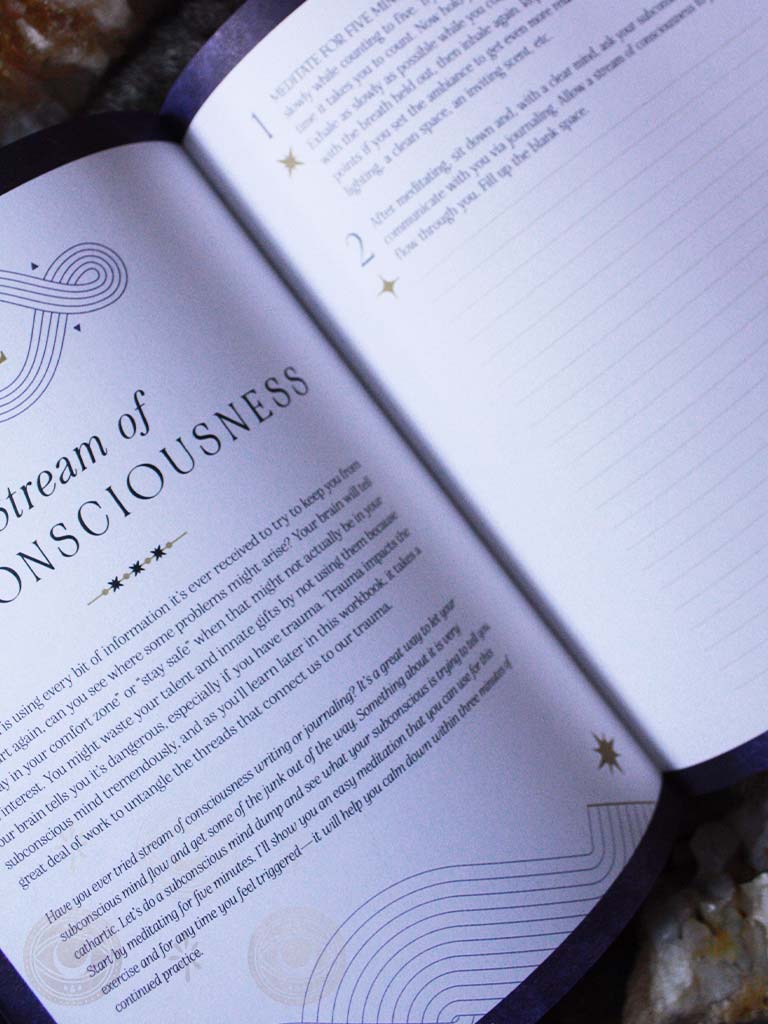 Stream of
CONSCIOUSNESS
is using every bit of information it's ever received to try to keep you from
again, can you see where some problems might arise? Your brain will tell
in your comfort zone" or "stay safe" when that might not actually be in your
interest. You might waste your talent and innate gifts by not using them because
your brain tells you it's dangerous, especially if you have trauma. Trauma impacts the
subconscious mind tremendously, and as you'll learn later in this workbook, it takes a
great deal of work to untangle the threads that connect us to our trauma.
Have you ever tried stream of consciousness writing or journaling? It's a great way to let your
subconscious mind flow and get some of the junk out of the way. Something about it is very
cathartic. Let's do a subconscious mind dump and see what your subconscious is trying to tell you.
Start by meditating for five minutes. I'll show you an easy meditation that you can use for this
exercise and for any time you feel triggered—it will help you calm down within three minutes of
continued practice.
1
MEDITATE FOR FIVE
slowly while counting to five.
time it takes you to count. Now hold
Exhale as slowly as possible while you
with the breath held out, then inhale again.
points if you set the ambiance to get even more
lighting, a clean space, an inviting scent, etc.
2
After meditating, sit down and, with a clear mind, ask your
communicate with you via journaling. Allow a stream of consciousness to
flow through you. Fill up the blank space.